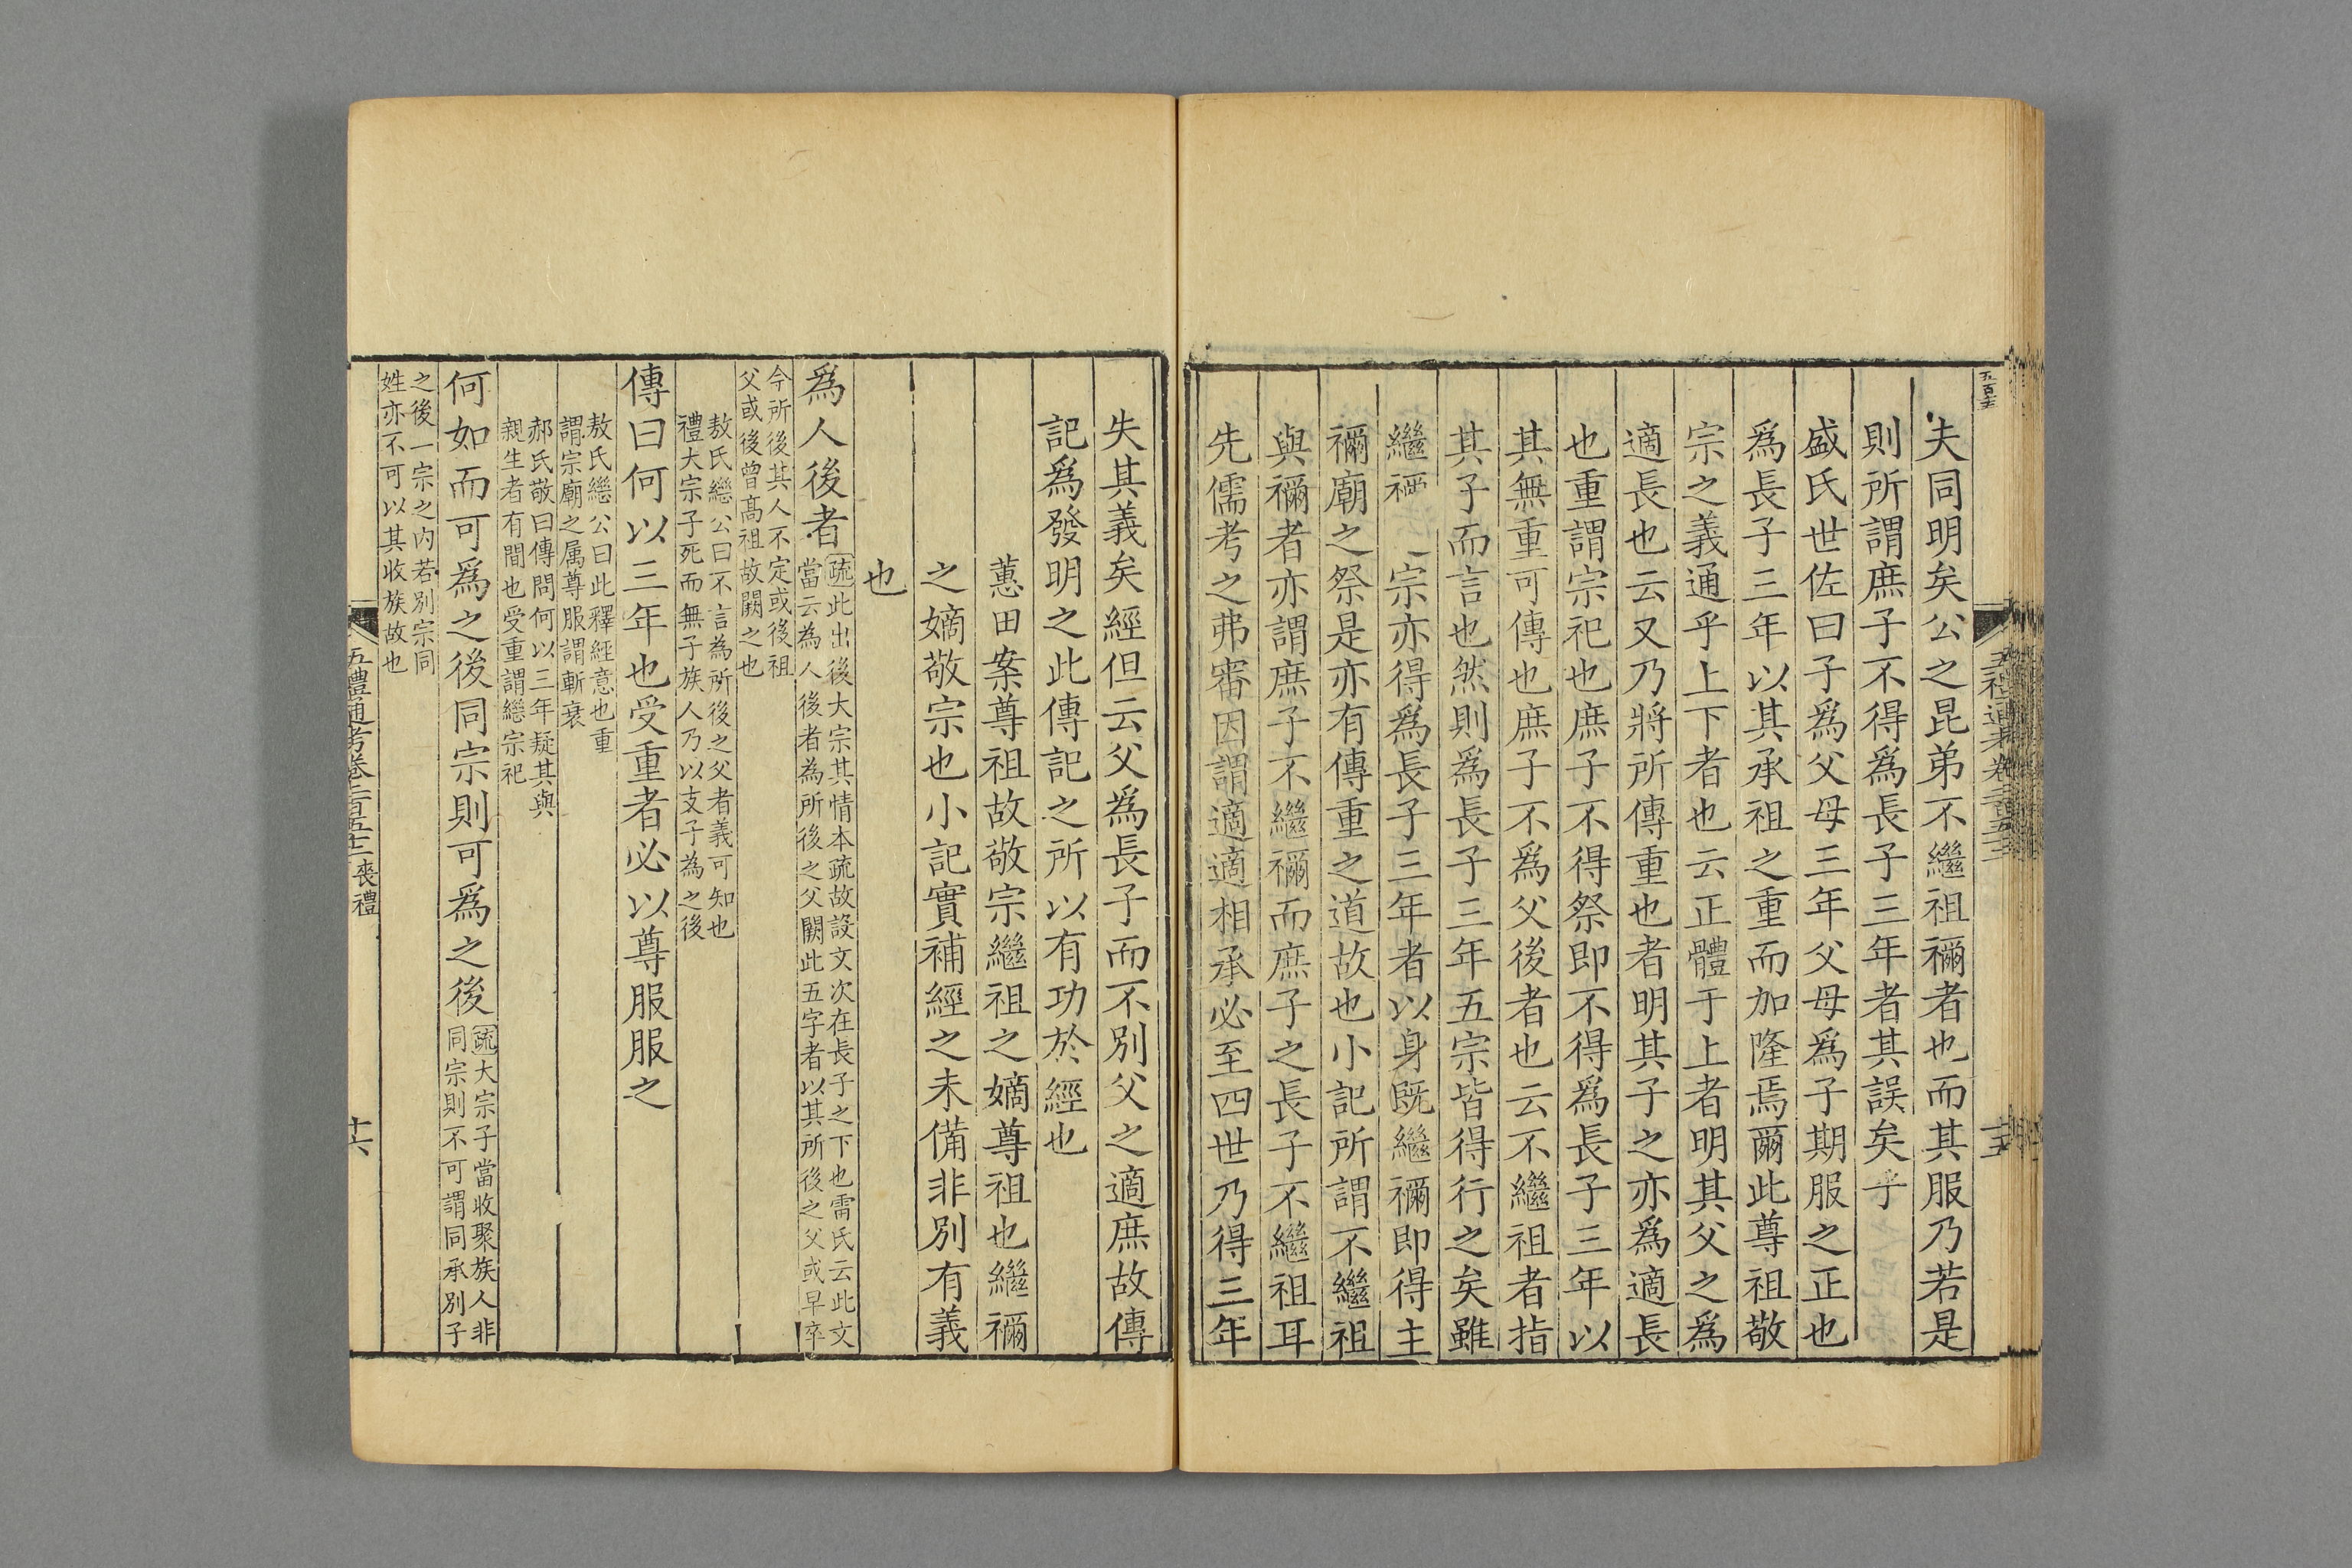 夫同明矣公之昆弟不繼祖禰者也而其服乃若是
則所謂庶子不得爲長子三年者其誤矣乎
盛氏世佐曰子爲父母三年父母爲子期服之正也
爲長子三年以其承祖之重而加隆焉爾此尊祖敬
宗之義通乎上下者也云正體于上者明其父之爲
適長也云又乃將所傳重也者明其子之亦爲適長
也重謂宗祀也庶子不得祭即不得爲長子三年以
其無重可傳也庶子不爲父後者也云不繼祖者指
其子而言也然則爲長子三年五宗皆得行之矣雖
繼禰一宗亦得爲長子三年者以身既繼禰即得主
禰廟之祭是亦有傳重之道故也小記所謂不繼祖
與禰者亦謂庶子不繼禰而庶子之長子不繼祖耳
先儒考之弗審因謂適適相承必至四世乃得三年
失其義矣經但云父爲長子而不別父之適庶故傳
記爲發明之此傳記之所以有功於經也
蕙田案尊祖故敬宗繼祖之嫡尊祖也繼禰
之嫡敬宗也小記實補經之未備非別有義
也
爲人後者
疏此出後大宗其情本疏故設文次在長子之下也雷氏云此文
當云為人後者為所後之父闕此五字者以其所後之父或早卒
今所後其人不定或後祖
父或後曾髙祖故闕之也
敖氏繼公曰不言為所後之父者義可知也
禮大宗子死而無子族人乃以支子為之後
傳曰何以三年也受重者必以尊服服之
敖氏繼公曰此釋經意也重
謂宗廟之属尊服謂斬衰
郝氏敬曰傳問何以三年疑其與
親生者有間也受重謂繼宗祀
何如而可爲之後同宗則可爲之後
疏大宗子當收聚族人非
同宗則不可謂同承別子
之後一宗之内若別宗同
姓亦不可以其收族故也
五禮通考卷二百五十二 喪禮
十六